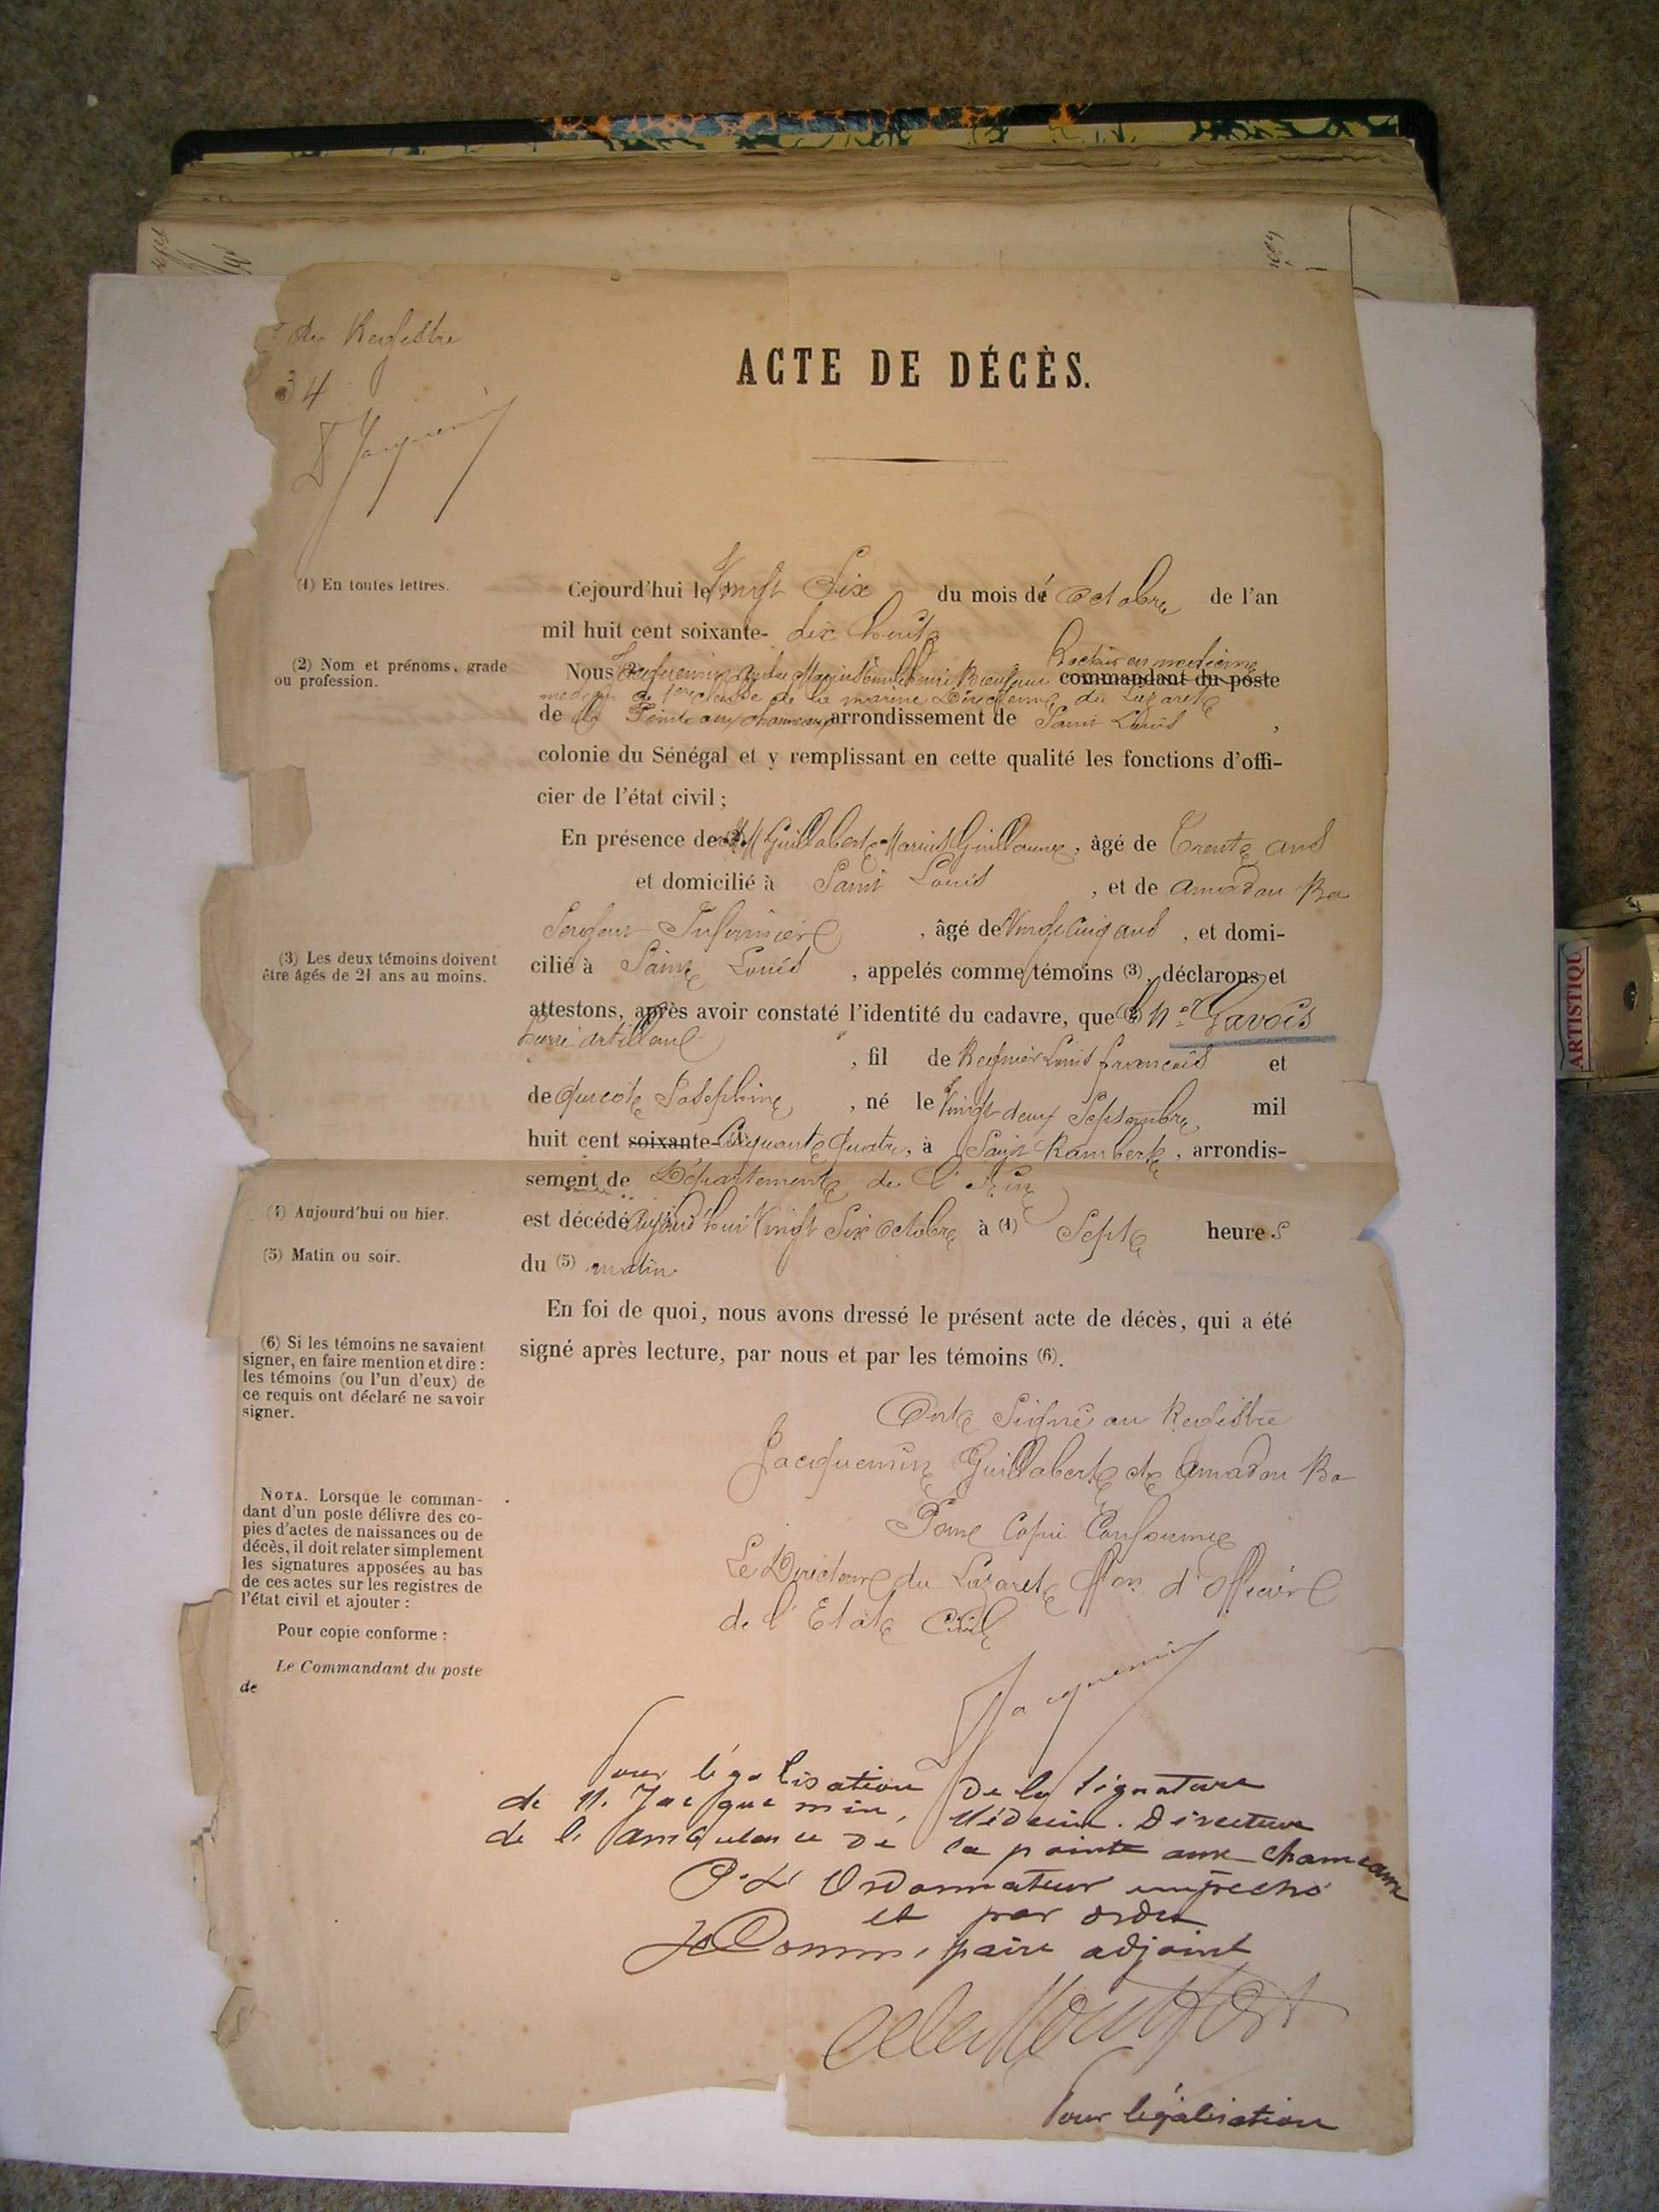 du Registre
34
Jacquemin
ACTE DE DÉCÈS.
(1) En toutes lettres.
Cejourd'hui le Vingt Six du mois dé Octobre de l'an
mil huit cent soixante- dix huit
(2) Nom et prénoms, grade
ou profession.
Docteur en medecine
Nous Jacquemin commandant du poste
medecin de 1ere classe de la marine Directeur du Lazaret
de la Pointe aux chameaux arrondissement de Saint Louis ,
colonie du Sénégal et y remplissant en cette qualité les fonctions d'offi-
cier de l'état civil ;
En présence de M Guillabert Marius Guillaume , âgé de Trente ans
et domicilié à Saint Louis , et de Amadou Ba
Sergent Infirmier , âgé de Vingt Cinq ans , et domi-
(3) Les deux témoins doivent
être âgés de 21 ans au moins.
cilié à Saint Louis , appelés comme témoins (3), déclarons et
attestons, après avoir constaté l'identité du cadavre, que Gavois
artilleur , fil de Louis francois et
de Josephine , né le Vingt deux Septembre mil
huit cent soixante- Cinquante Quatre, à Saint Rambert , arrondis-
sement de Département de l'Ain
(4) Aujourd'hui ou hier.
est décédé Aujourd'hui Vingt Six octobre à (4) Sept heures
(5) Matin ou soir.
du (5) matin
En foi de quoi, nous avons dressé le présent acte de décès, qui a été
signé après lecture, par nous et par les témoins (6).
(6) Si les témoins ne savaient
signer, en faire mention et dire :
les témoins (ou l'un d'eux) de
ce requis ont déclaré ne savoir
signer.
Ont Signé au Registre
Jacquemin Guillabert et Amadou Ba
Pour Copie Conforme
Le Directeur du Lazaret ffon d'officier
de l'Etat Civil
NOTA. Lorsque le comman-
dant d'un poste délivre des co-
pies d'actes de naissances ou de
décès, il doit relater simplement
les signatures apposées au bas
de ces actes sur les registres de
l'état civil et ajouter :
Pour copie conforme :
Le Commandant du poste
de
Jacquemin
Pour légalisation de la signature
de M. Jacquemin, Médecin Directeur
de l'ambulance de la pointe aux chameaux
P. L' Ordonnateur empêché
et par ordre
Le Commissaire adjoint
Pour légalisation
ARTISTIQU